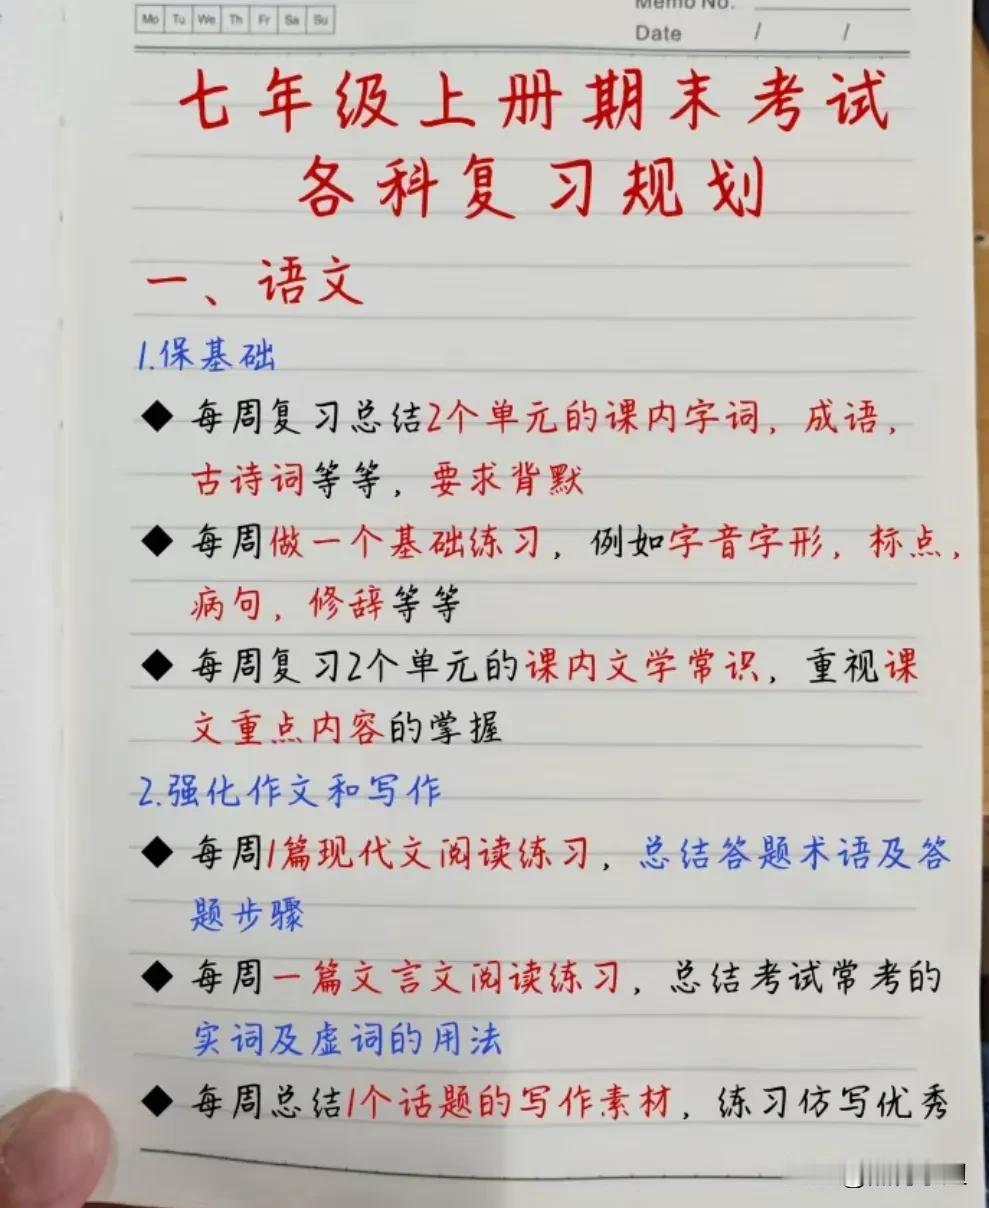 Mo Tu We Th Fr Sa Su
Memo No.
Date / /
七年级上册期末考试
各科复习规划
一、语文
1.保基础
◆ 每周复习总结2个单元的课内字词，成语，
古诗词等等，要求背默
◆ 每周做一个基础练习，例如字音字形，标点，
病句，修辞等等
◆ 每周复习2个单元的课内文学常识，重视课
文重点内容的掌握
2.强化作文和写作
◆ 每周1篇现代文阅读练习，总结答题术语及答
题步骤
◆ 每周一篇文言文阅读练习，总结考试常考的
实词及虚词的用法
◆ 每周总结1个话题的写作素材，练习仿写优秀